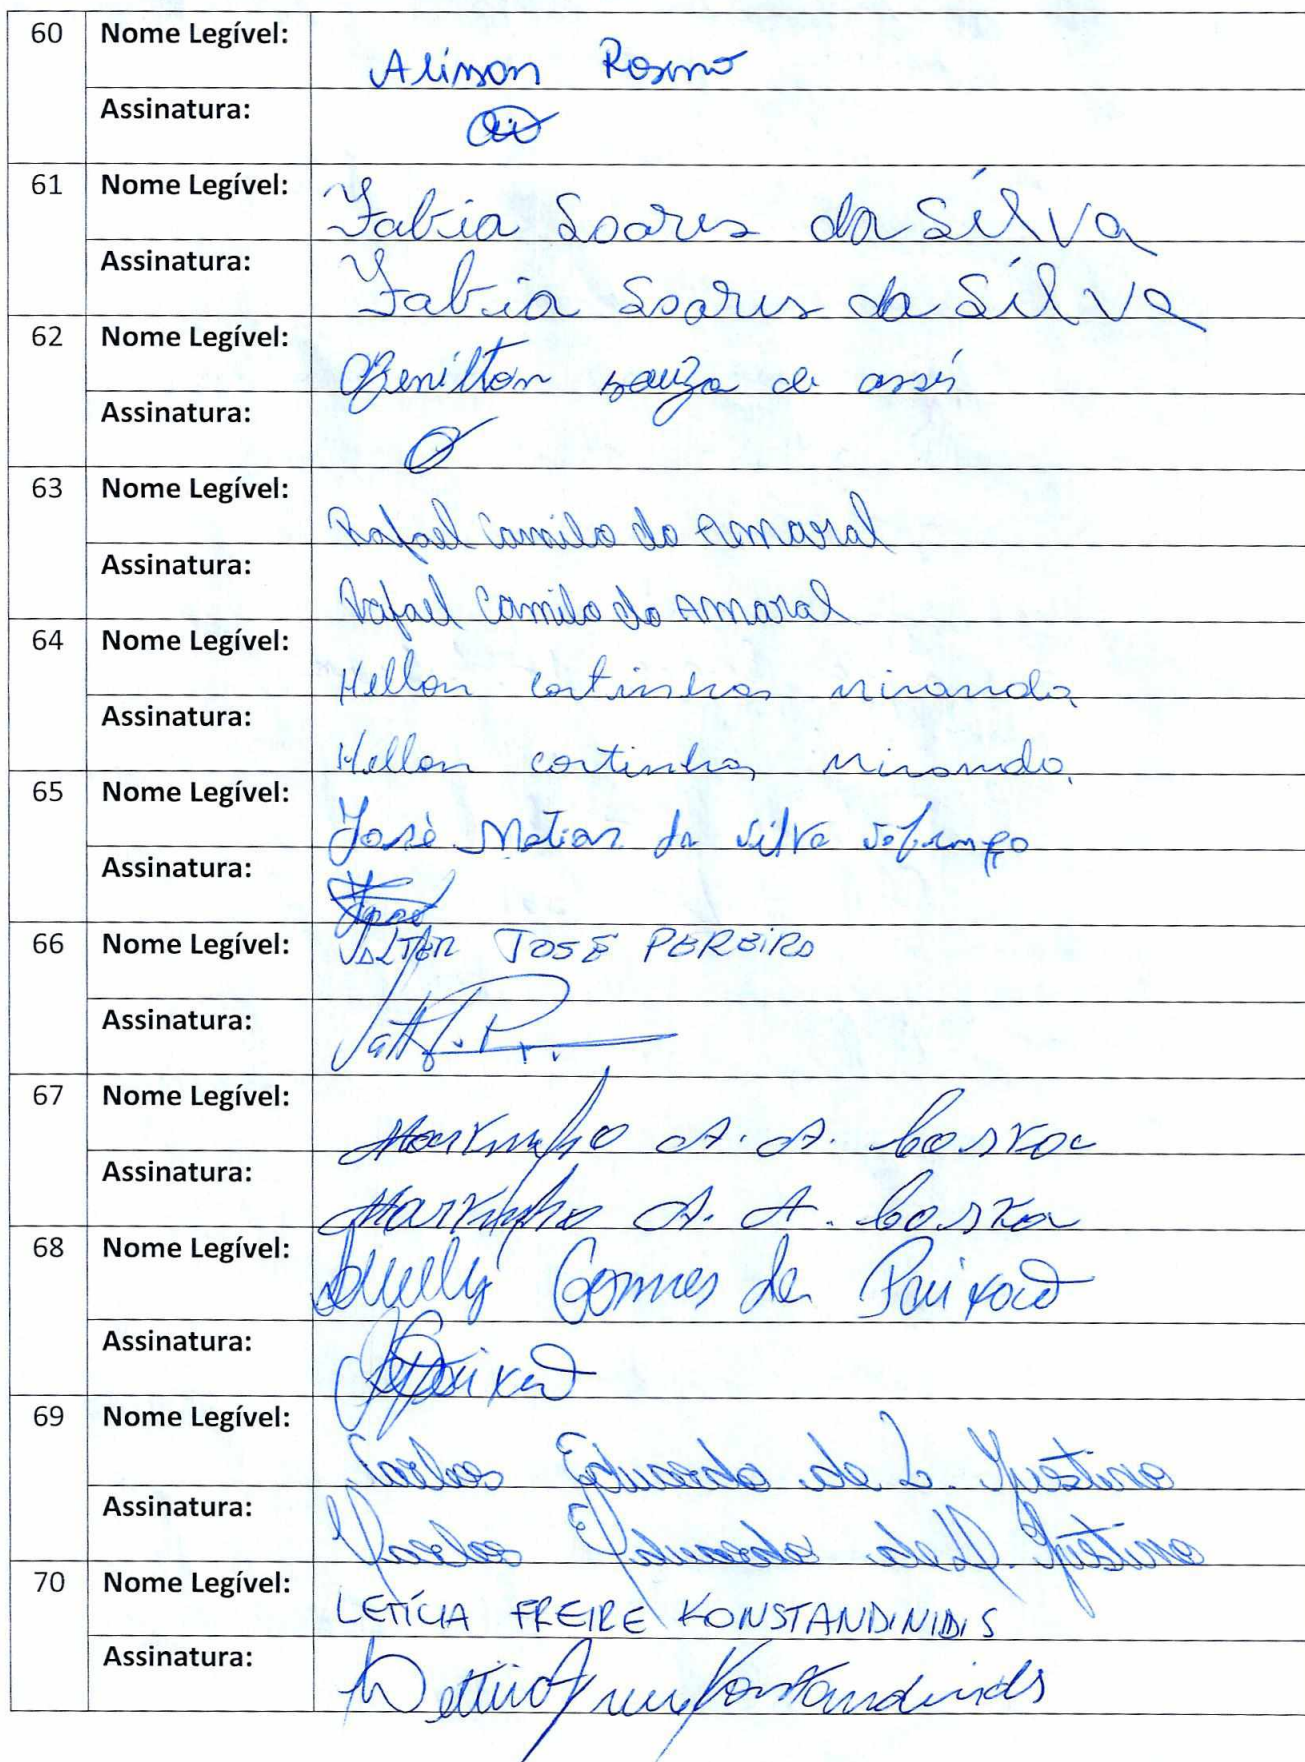 60 Nome Legível: Alisson
Assinatura:
61 Nome Legível: Fabia Soares da Silva
Assinatura: Fabia Soares da Silva
62 Nome Legível: Genilton souza de assis
Assinatura:
63 Nome Legível: Rafael Camilo do Amaral
Assinatura: Rafael Camilo do Amaral
64 Nome Legível: Hellon cortinhas miranda
Assinatura: Hellon cortinhas miranda
65 Nome Legível: José Matias da Silva
Assinatura: José
66 Nome Legível: VALTER JOSE PEREIRA
Assinatura:
67 Nome Legível: Markinho A. A. Costa
Assinatura: Markinho A. A. Costa
68 Nome Legível: Gomes da Paixao
Assinatura: Paixao
69 Nome Legível: Carlos Eduardo de L. Justino
Assinatura: Carlos Eduardo de L. Justino
70 Nome Legível: LETÍCIA FREIRE KONSTANDINIDIS
Assinatura: Konstandinidis